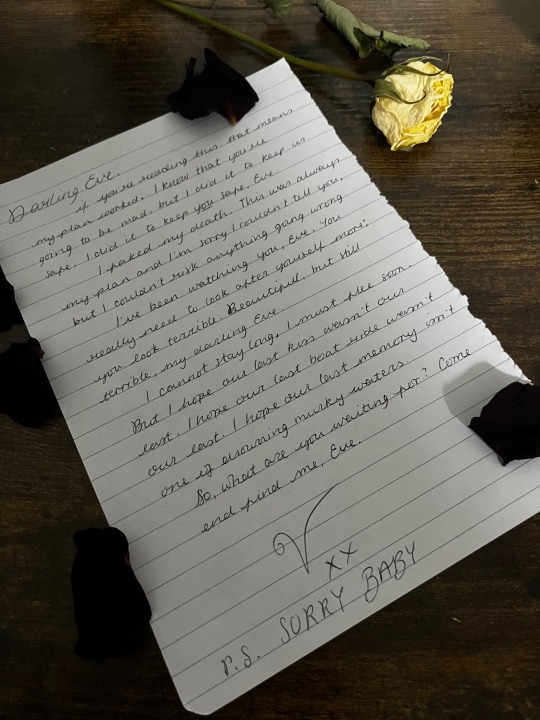 Darling Eve.
if you're reading this, that means
my plan worked. I know that you're
going to be mad, but I did it to keep us
safe. I did it to keep you safe, Eve.
I faked my death. This was always
my plan and I'm sorry I couldn't tell you,
but I couldn't risk anything going wrong.
I've been watching you, Eve. You
really need to look after yourself more;
you look terrible. Beautiful, but still
terrible, my darling Eve.
I cannot stay long, I must flee soon.
But I hope our last kiss wasn't our
last. I hope our last boat ride wasn't
our last. I hope our last memory isn't
one of drowning murky waters.
So, what are you waiting for? Come
and find me, Eve.
V
xx
P.S. SORRY BABY